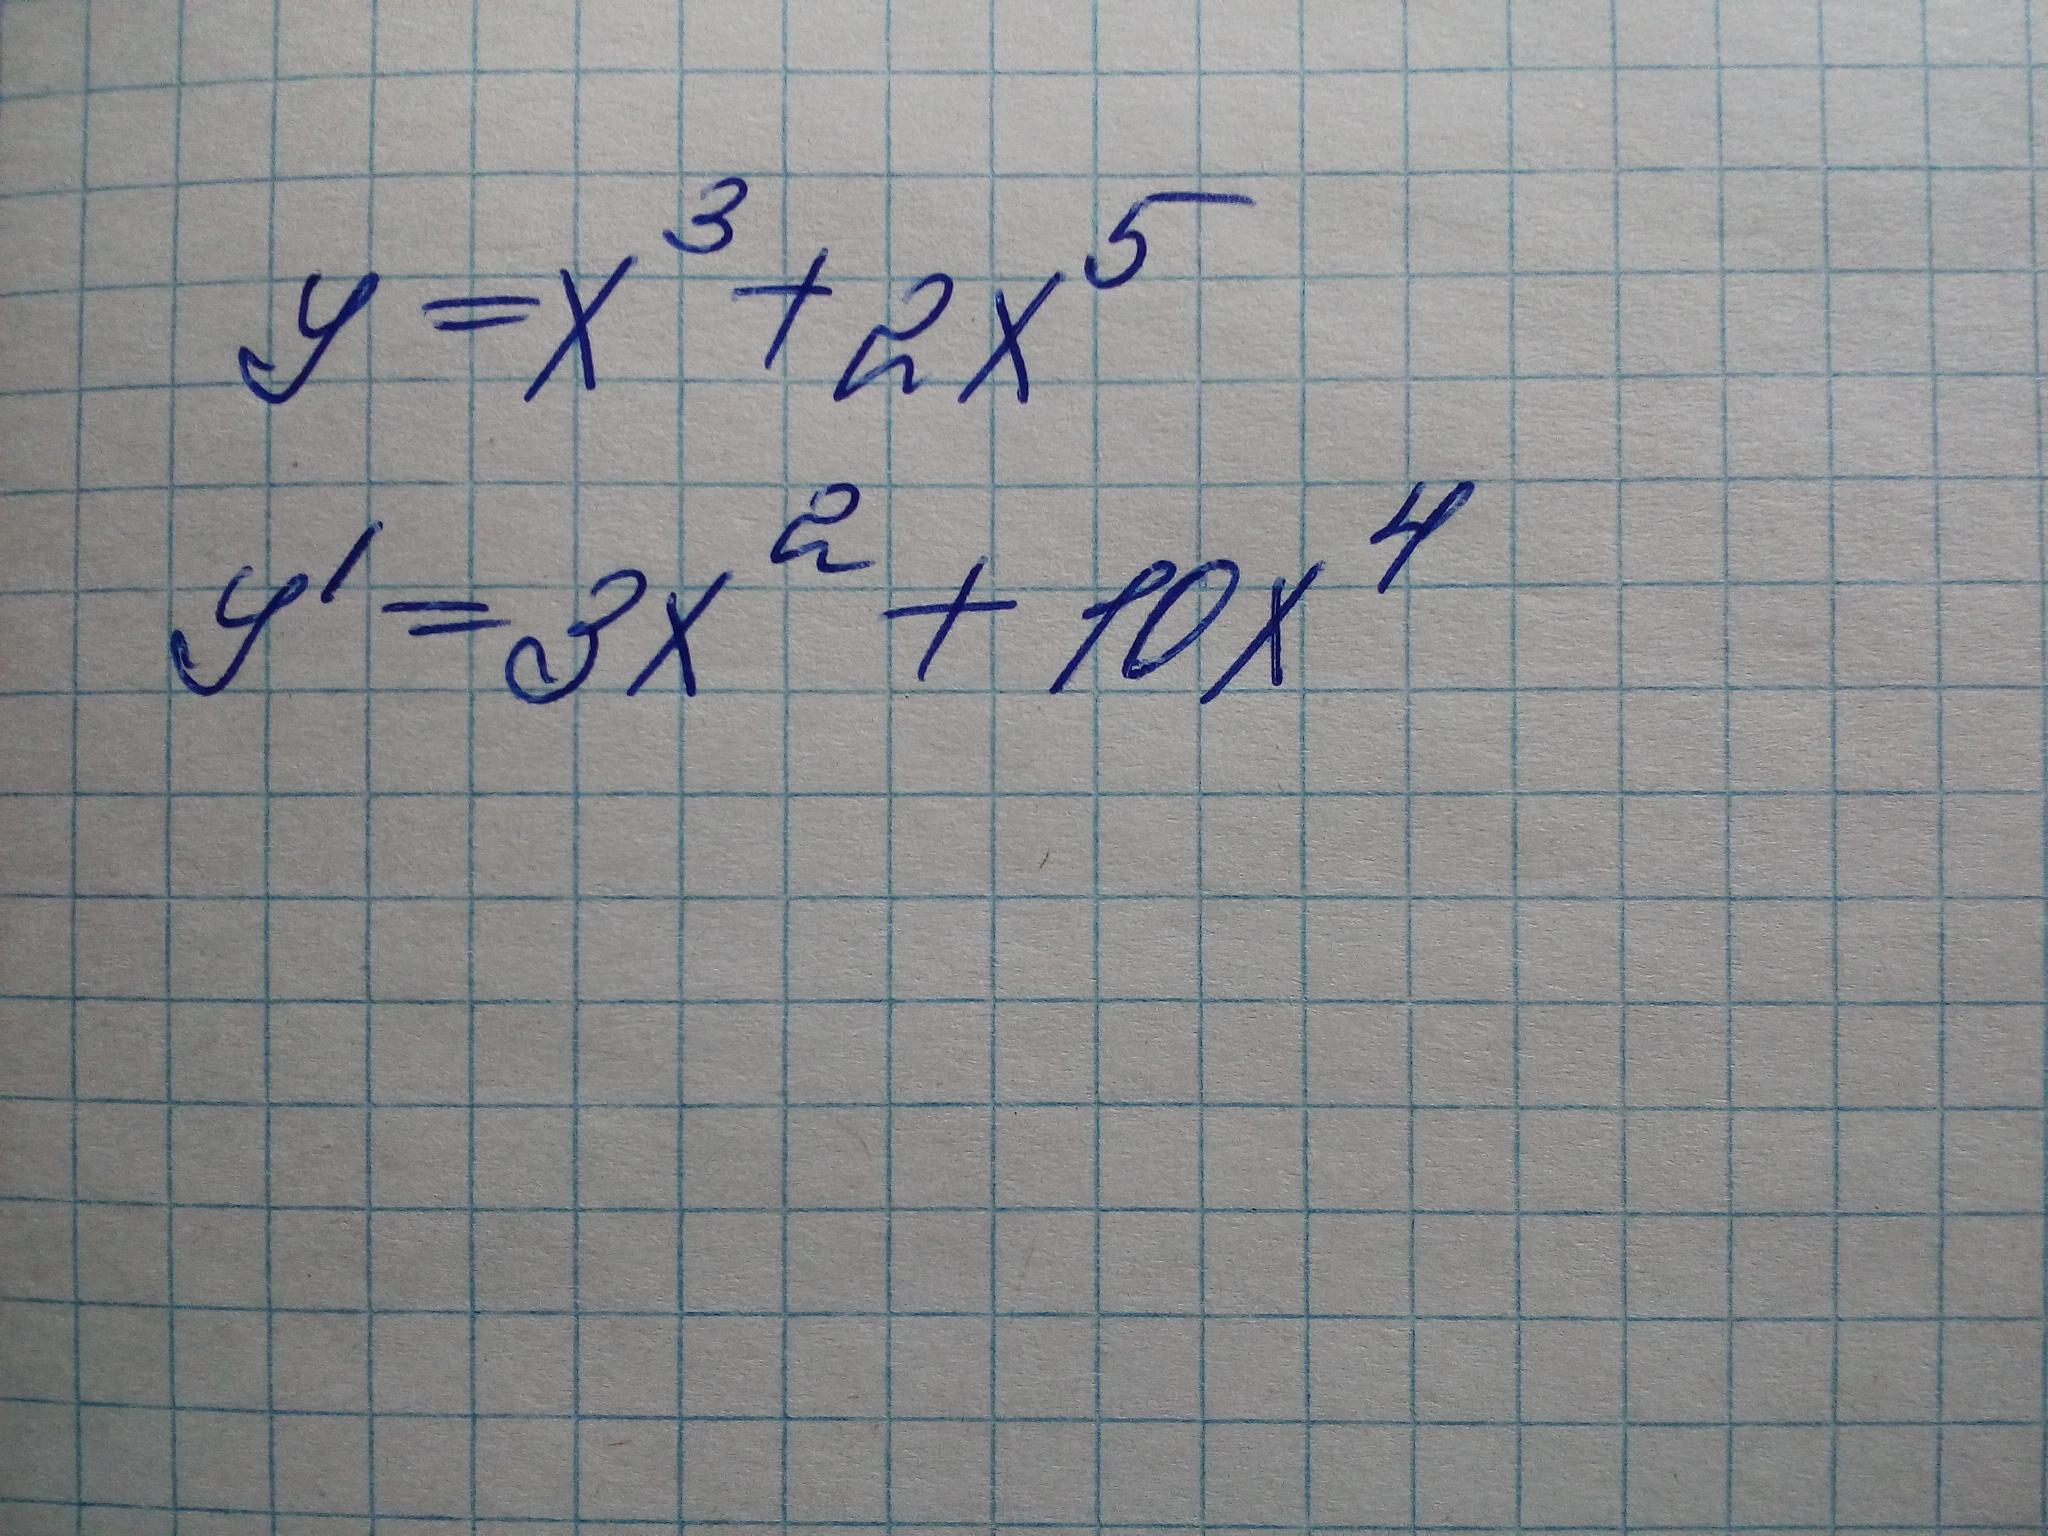 y = x³ + 2x⁵
y' = 3x² + 10x⁴